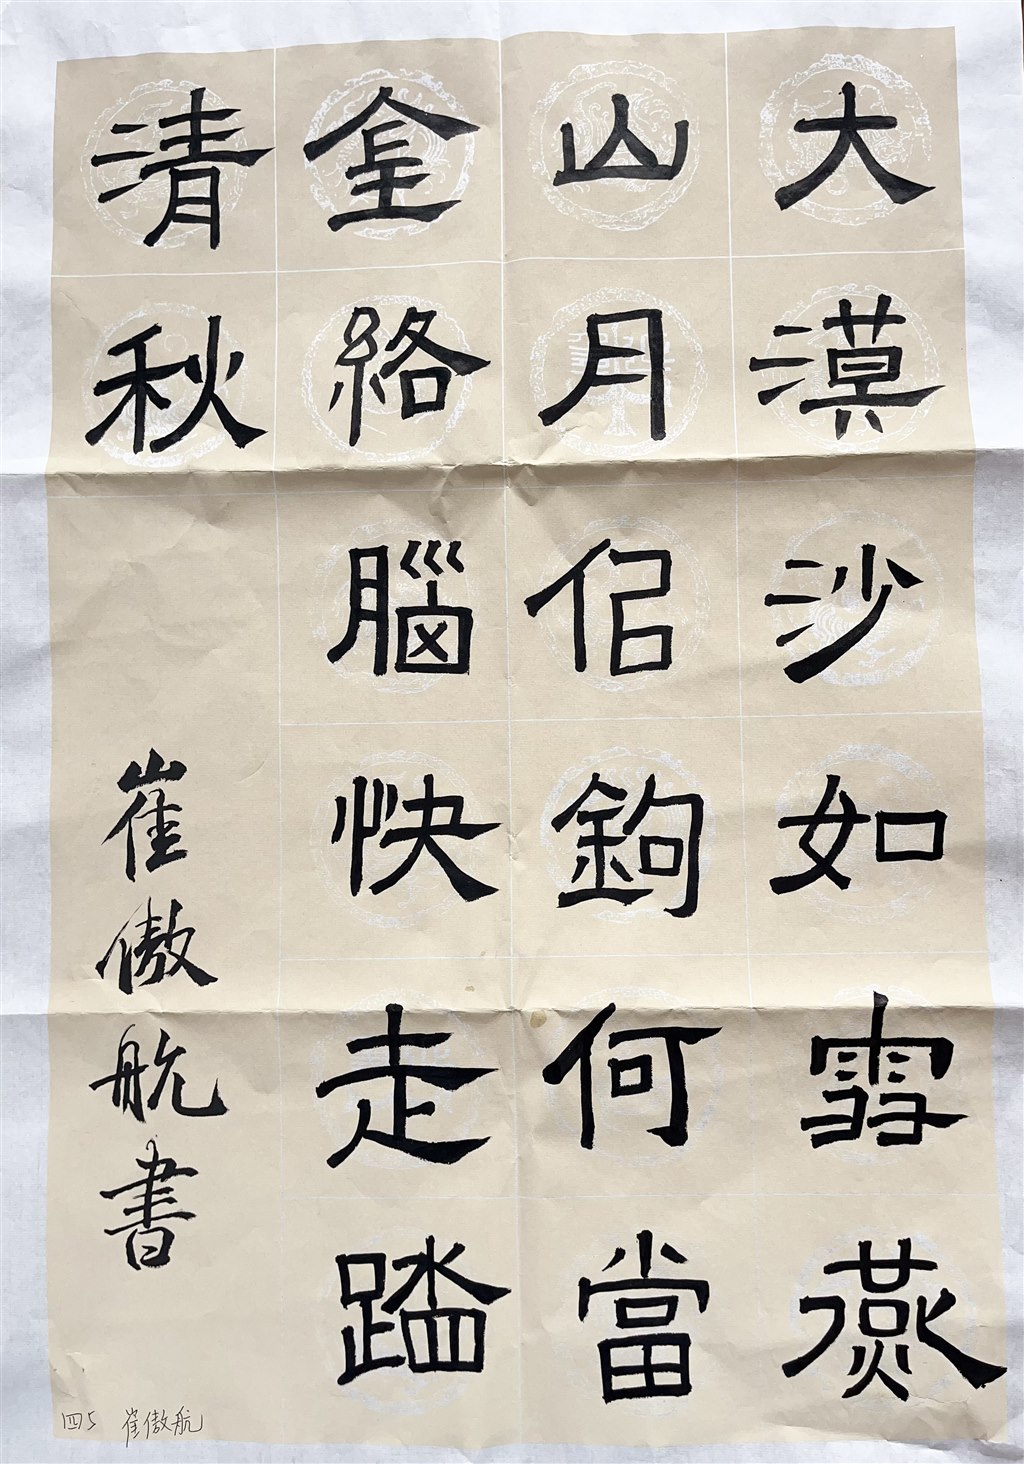 大漠沙如雪燕
山月佀鉤何當
金絡腦快走踏
清秋
崔傲航書
四5 崔傲航